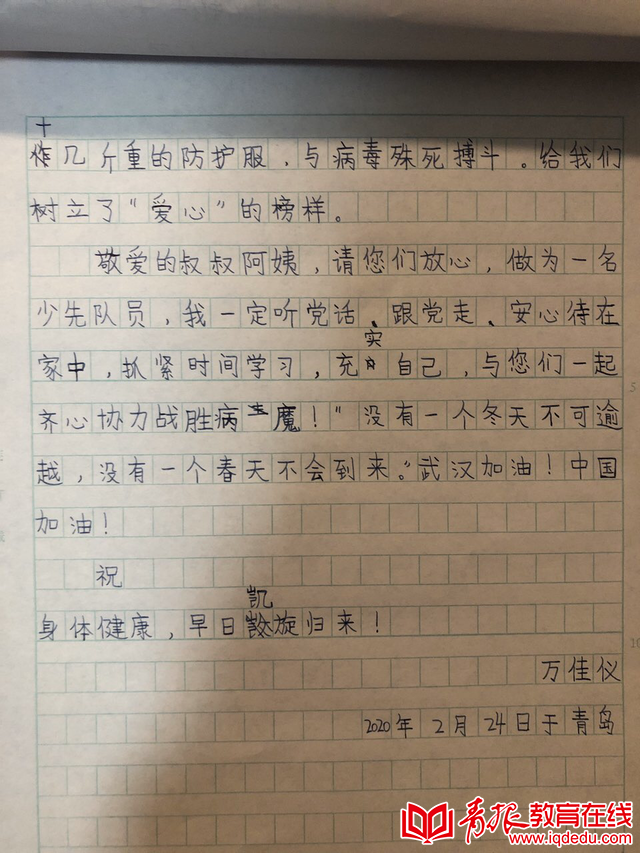 十
几斤重的防护服，与病毒殊死搏斗。给我们
树立了“爱心”的榜样。
敬爱的叔叔阿姨，请您们放心，做为一名
少先队员，我一定听党话、跟党走、安心待在
实
家中，抓紧时间学习，充自己，与您们一起
齐心协力战胜病魔！“没有一个冬天不可逾
越，没有一个春天不会到来。”武汉加油！中国
加油！
祝
凯
身体健康，早日旋归来！
万佳仪
2020年2月24日于青岛
5
10
青报教育在线
www.iqdedu.com